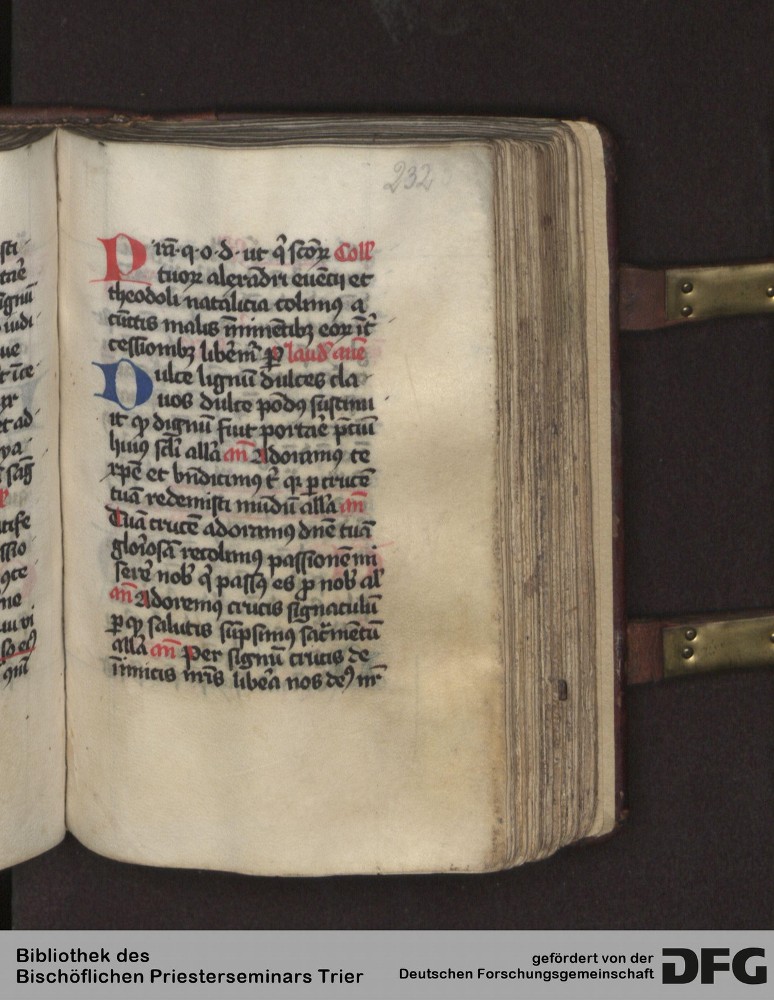 232
P rīa·q·o·d· ut q̄ sctōꝝ Coll̄
tuoꝝ alexādri euētij et
theodoli natalicia colimꝰ a
cūctis malis īminētibꝫ eoꝝ īt̄
cessionibꝫ liberm̄ ꝑ laud̾ añe
D ulce lignū dulces cla
uos dulce pōdꝰ sustinu
it qꝫ dignū fuit portare p̄ciū
huiꝰ scl̄i all̄a añ Adoramꝰ te
xp̄e et bn̄dicimꝰ t̄ qꝛ ꝑ crucē
tuā redemisti mūdū all̄a añ
Tuā crucē adoramꝰ dn̄e tuā
gl̄osā recolimꝰ passionē mi
serere nob̾ q̄ passꝰ es ꝓ nob̾ al̾
añ Adoremꝰ crucis signaculū
ꝑ qꝫ salutis sūpsimꝰ sac̄mētū
all̄a añ Per signū crucis de
īimicis nr̄is libera nos deꝰ nr̄
sti
ignū
iudi
ue
et ad
sāg
ssio
ne
qm̄
Bibliothek des
Bischöflichen Priesterseminars Trier
gefördert von der
Deutschen Forschungsgemeinschaft DFG